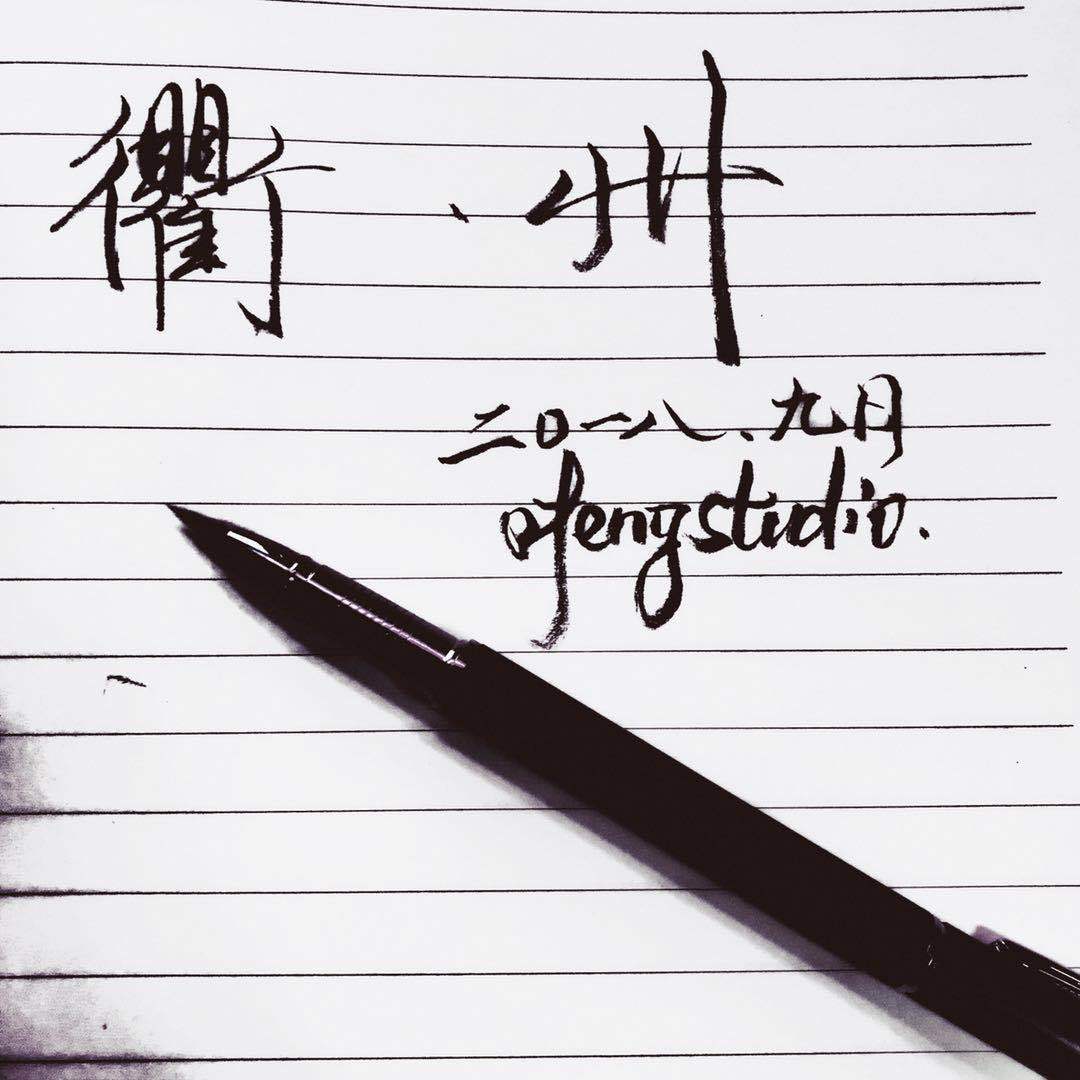 衢、州
二〇一八、九月
ofengstudio.